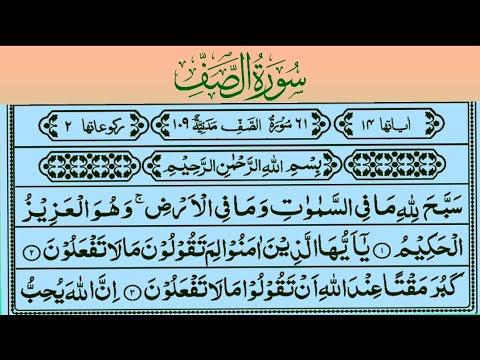 سُوْرَةُ الصَّفِّ
اٰیاتها ۱۴ ۶۱ سُوْرَةُ الصَّفِّ مَدَنِیَّةٌ ۱۰۹ رکوعاتها ۲
بِسْمِ اللّٰهِ الرَّحْمٰنِ الرَّحِیْمِ
سَبَّحَ لِلّٰهِ مَا فِی السَّمٰوٰتِ وَمَا فِی الْاَرْضِ ۚ وَهُوَ الْعَزِیْزُ
الْحَكِیْمُ ۝۱ یٰۤاَیُّهَا الَّذِیْنَ اٰمَنُوْا لِمَ تَقُوْلُوْنَ مَا لَا تَفْعَلُوْنَ ۝۲
كَبُرَ مَقْتًا عِنْدَ اللّٰهِ اَنْ تَقُوْلُوْا مَا لَا تَفْعَلُوْنَ ۝۳ اِنَّ اللّٰهَ یُحِبُّ